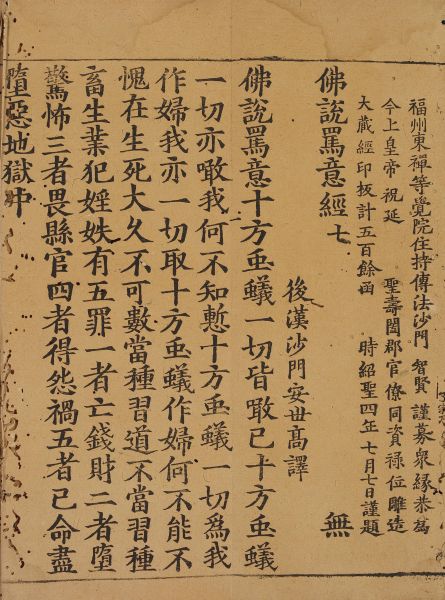 福州東禪等覺院住持傳法沙門 智賢 謹募衆緣恭爲
今上皇帝 祝延 聖壽闔郡官僚同資祿位雕造
大藏經印板計五百餘函 時紹聖四年七月七日謹題
佛說罵意經七 無
後漢沙門安世高譯
佛說罵意十方䖝蟻一切皆噉已十方䖝蟻
一切亦噉我何不知慙十方䖝蟻一切爲我
作婦我亦一切取十方䖝蟻作婦何不能不
愧在生死大久不可數當種習道不當習種
畜生業犯婬妷有五罪一者亡錢財二者墮
驚怖三者畏縣官四者得怨禍五者已命盡
墮惡地獄中